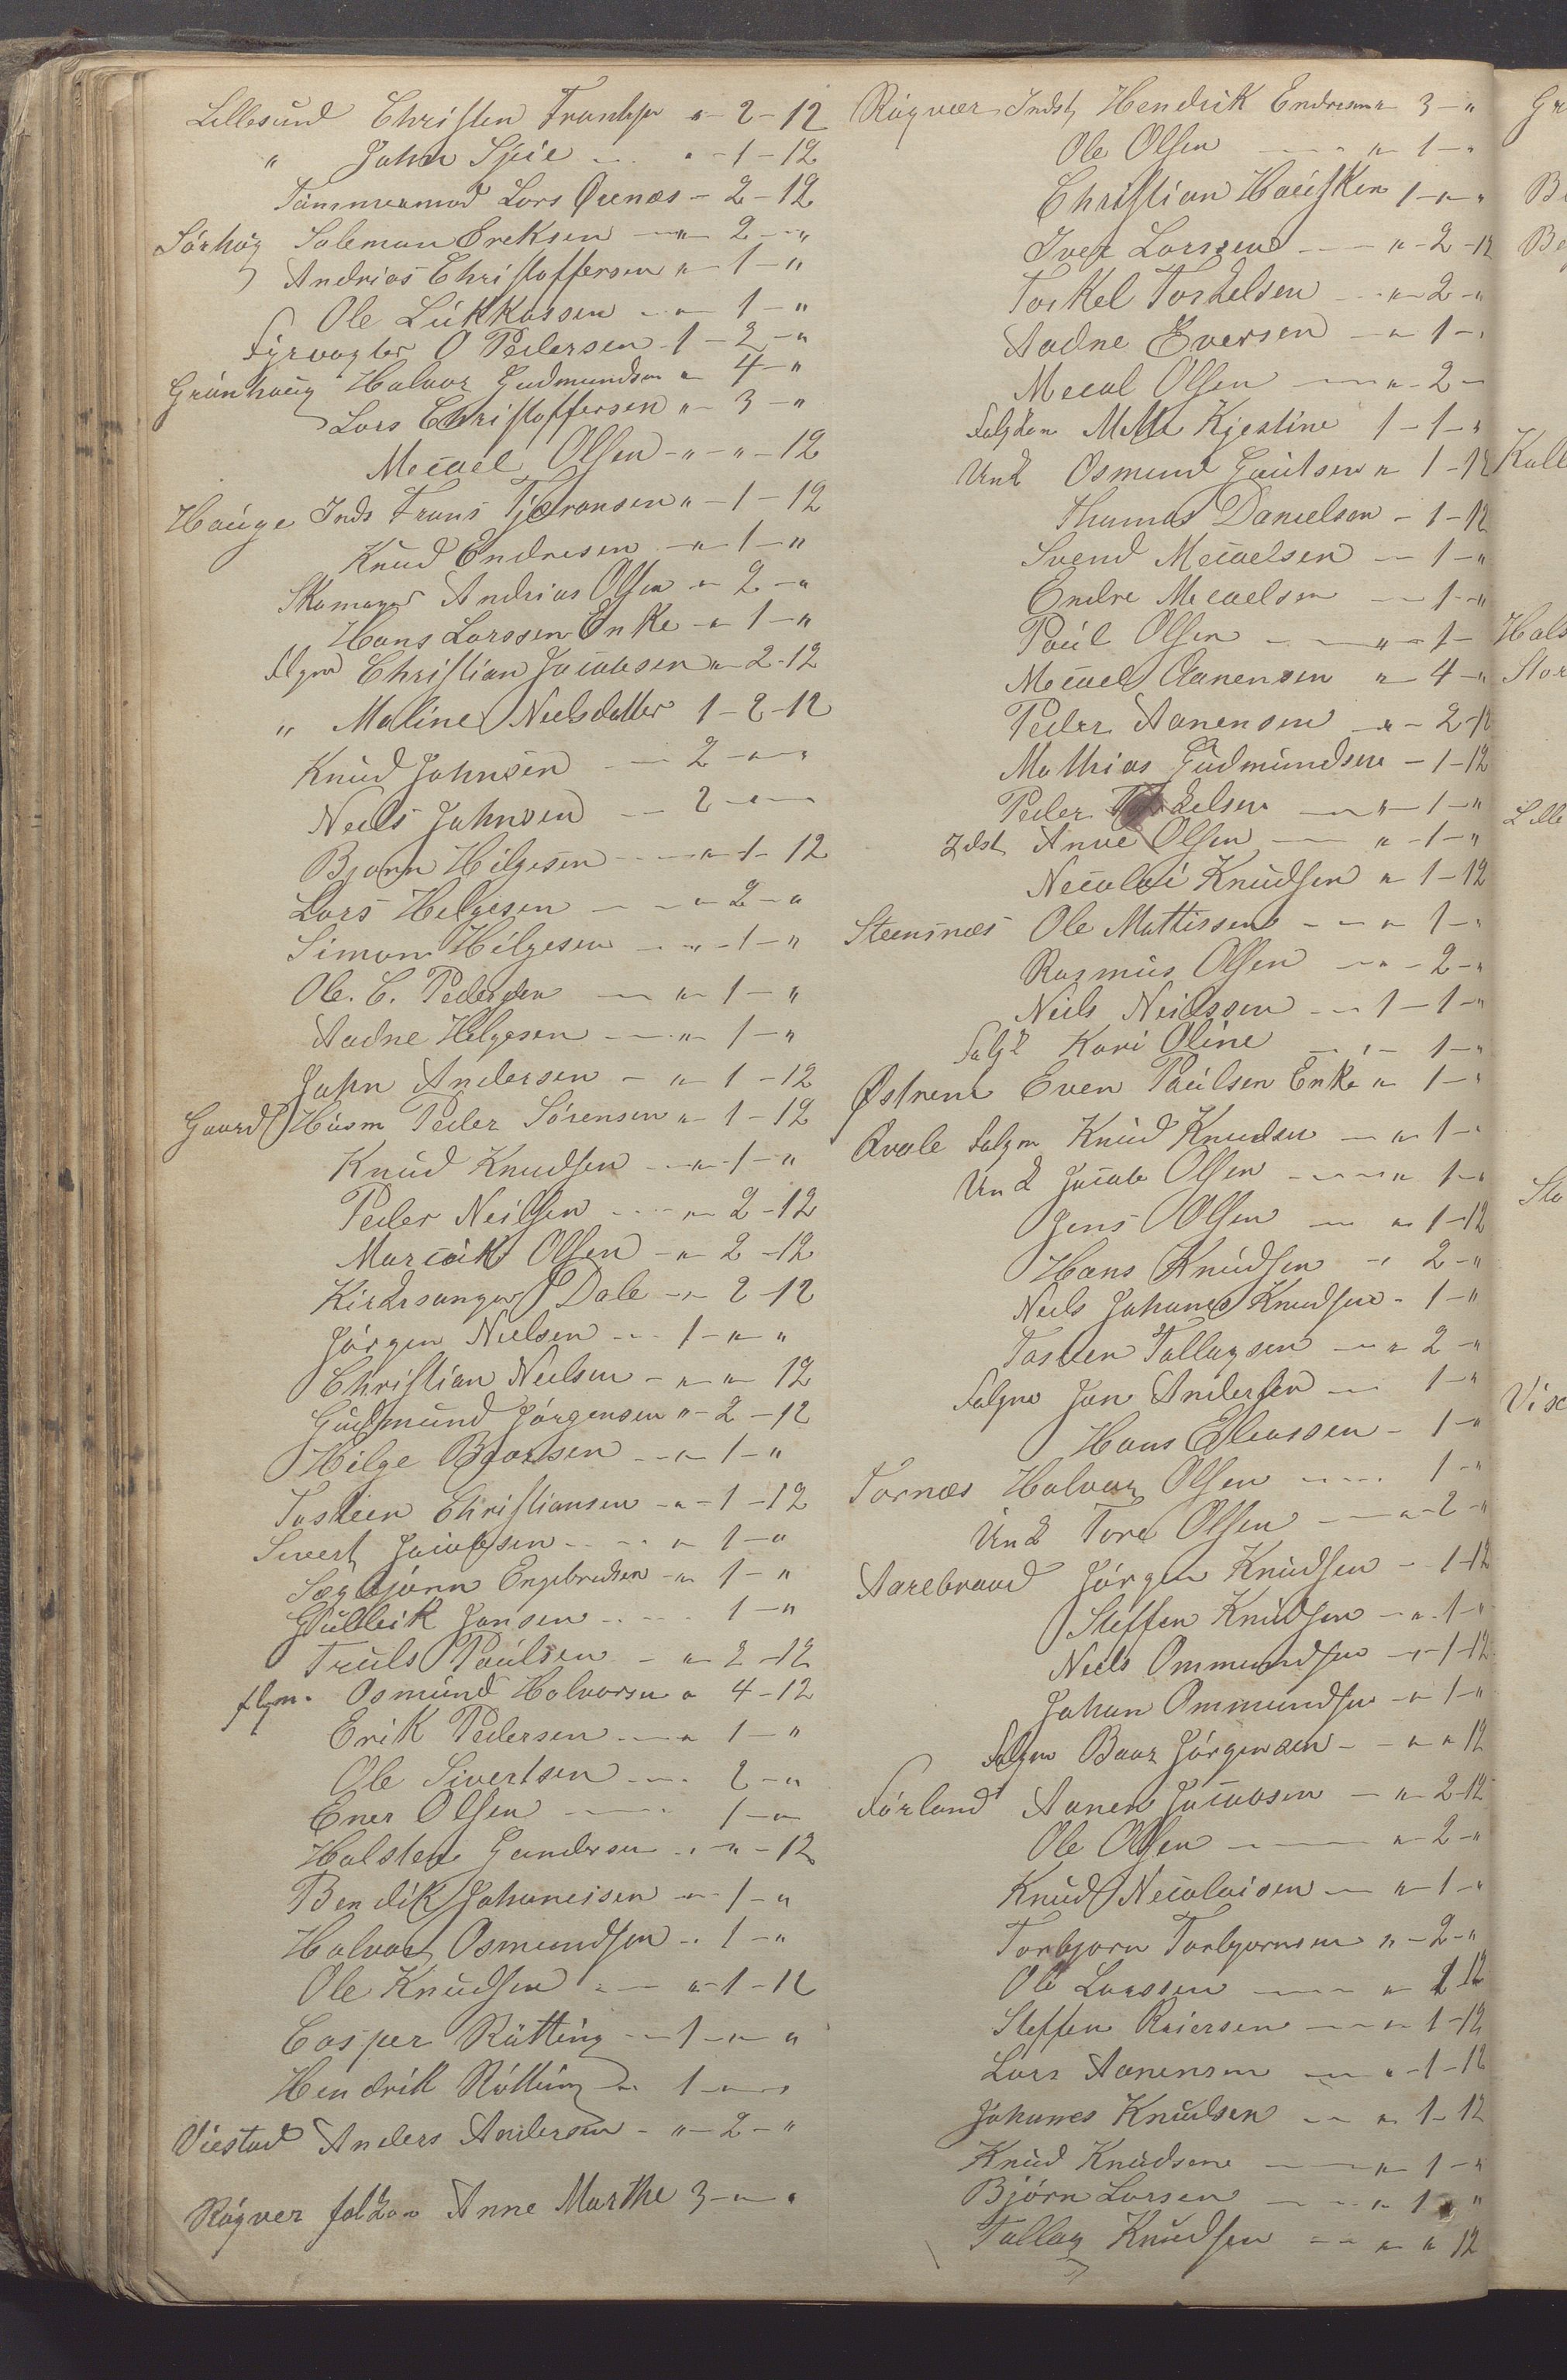 Lillesund Christen Frantzen " - 2 - 12
" John Spie - " - 1 - 12
Tømmermad Lars Ørenæs - 2 - 12
Sørhøg Soleman Ereksen - " - 2 - "
Andrias Christoffersen " - 1 - "
Ole Lukkassen - " - 1 - "
Fyrvogter O Pedersen - 1 - 2 - "
Grønhaug Halvor Gudmundsen " - 4 - "
Lars Christoffersen " - 3 - "
Micael Olsen - " - " - 12
Hauge Inds Frans Tjøransen " - 1 - 12
Knud Endresen - " - 1 - "
Skomager Andrias Olsen " - 2 - "
Hans Larssen Enke - " - 1 - "
flgm Christian Jacobsen " - 2 - 12
" Maline Nielsdatter 1 - 2 - 12
Knud Johnsen - 2 - " - "
Neels Johnsen - 2 - " -
Bjørn Hilgesen - " - 1 - 12
Lars Helgesen - " - 2 - "
Simon Hilgesen - " - 1 - "
Ole. C. Pedersen - " - 1 - "
Aadne Helgesen - " - 1 - "
John Andersen - " - 1 - 12
Gaard Husm Peder Sørensen " - 1 - 12
Knud Knudsen - " - 1 - "
Peder Neilsen - " - 2 - 12
Marcuk Olsen - " - 2 - 12
Kirkesanger P Dale - " - 2 - 12
Jørgen Nielsen - 1 - " - "
Christian Neelsen - " - " 12
Gudmund Jørgensen " - 2 - 12
Hilge Baarsen - " - 1 - "
Tosteen Christiansen - " - 1 - 12
Sivert Jacobsen - " - 1 - "
Torbjørn Engebredsen " - 1 - "
Gulleik Jansen - 1 - "
Truls Poulsen - " - 2 - 12
flgm. Osmund Halvorsen " 4 - 12
Erik Pedersen - " 1 - "
Ole Sivertsen - 2 - "
Ener Olsen - 1 - "
Halsten Gundersen - " - 12
Bendik Johanesen - " - 1 - "
Halvor Osmundsen - 1 - "
Ole Knudsen - " - 1 - 12
Casper Røtting - 1 - " - "
Hendrik Røtting - 1 - " - "
Viestad Anders Andersen - " - 2 - "
Røgver folkon Anne Marthe 3 - " - "
Røgvær Indst Hendrik Endresen " 3 - "
Ole Olsen - " - 1 - "
Christian Haufken 1 - " - "
Iver Larssen - " - 2 - 12
Torkel Torkelsen - " - 2 - "
Aadne Eversen - " - 1 - "
Mecal Olsen - " - 2 -
Folgkon Mette Kjestine 1 - 1 - "
Und Osmund Gautsen " - 1 - 12
Thomas Danielsen - 1 - 12
Svend Mecaelsen - 1 - "
Endre Mecaelsen - 1 - "
Poul Olsen - " - 1 -
Mecael Aanensen " - 4 - "
Peder Aanensen - " - 2 - 12
Mathias Gudmundsen - 1 - 12
Peder Torkelsen - " - 1 - "
Idst Anve Olsen - " - 1 - "
Necolai Knudsen " 1 - 12
Steensnæs Ole Mattissen - " - 1 - "
Rasmus Olsen - " - 2 - "
Neils Neilssen - 1 - 1 - "
Folgk Kari Oline - " - 1 - "
Østrem Even Poulsen Enke " - 1 - "
Qvale Folgm Knud Knudsen - " - 1 - "
Und Jacob Olsen - " - 1 - "
Jens Olsen - " - 1 - 12
Hans Knudsen - " 2 - "
Neels Johanes Knudsen - 1 - "
Tosten Tollagsen - " 2 - "
Folgm Jan Andersen - 1 - "
Hans Eleassen - 1 - "
Tornæs Halvor Olsen - 1 - "
Und Tore Olsen - " - 2 - "
Aarebrood Jørgen Knudsen - 1 - 12
Steffen Knudsen - " - 1 - "
Neels Ommundsen - " - 1 - 12
Johan Ommundsen - " - 1 - "
Folgm Baar Jørgensen - " - " 12
Førland Aanen Jacobsen - " - 2 - 12
Ole Olsen - " - 2 - "
Knud Necolaisen - " - 1 - "
Torbjorn Torbjornsen " - 2 - "
Ole Larssen - " - 1 12
Steffen Reiersen - " - 1 - 12
Lars Aanensen - " - 1 - 12
Johanes Knudsen - " - 1 - 12
Knud Knudsen - " - 1 - "
Bjørn Larsen - " - 1 - "
Tollag Knudsen - " - " 12
Gr
B
Be
Koll
Hals
Stor
Lille
Sto
Vise